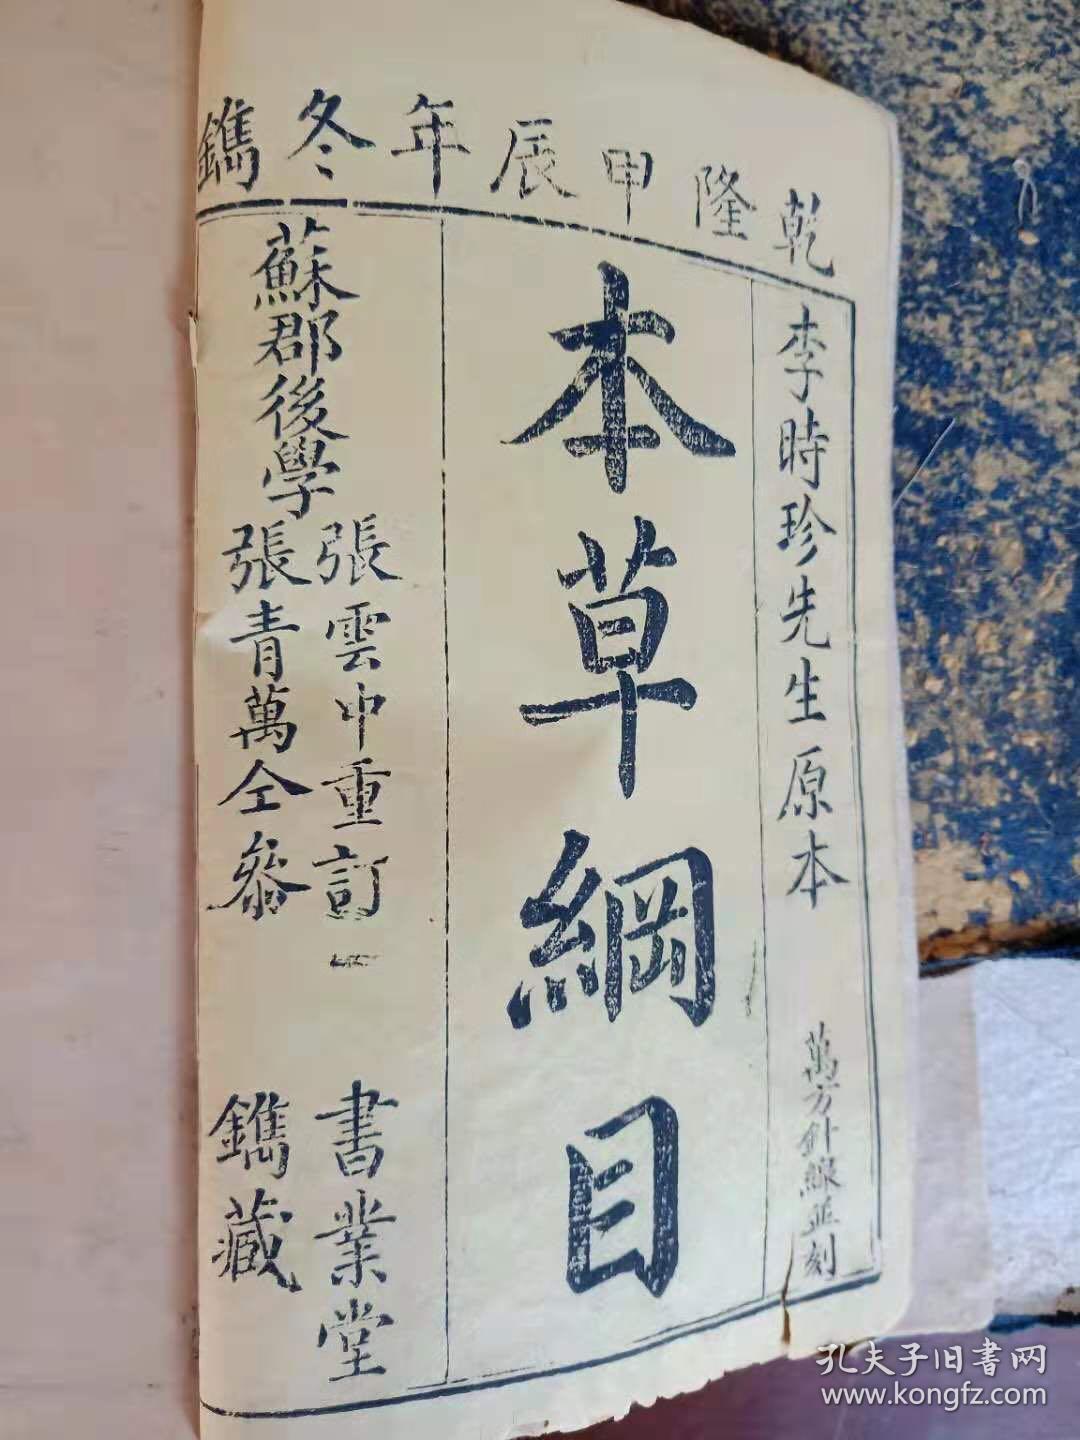 乾隆甲辰年冬鐫
李時珍先生原本
萬方針線並刻
本草綱目
蘇郡後學
張雲中重訂
張青萬仝參
書業堂
鐫藏
孔夫子旧書网
www.kongfz.com